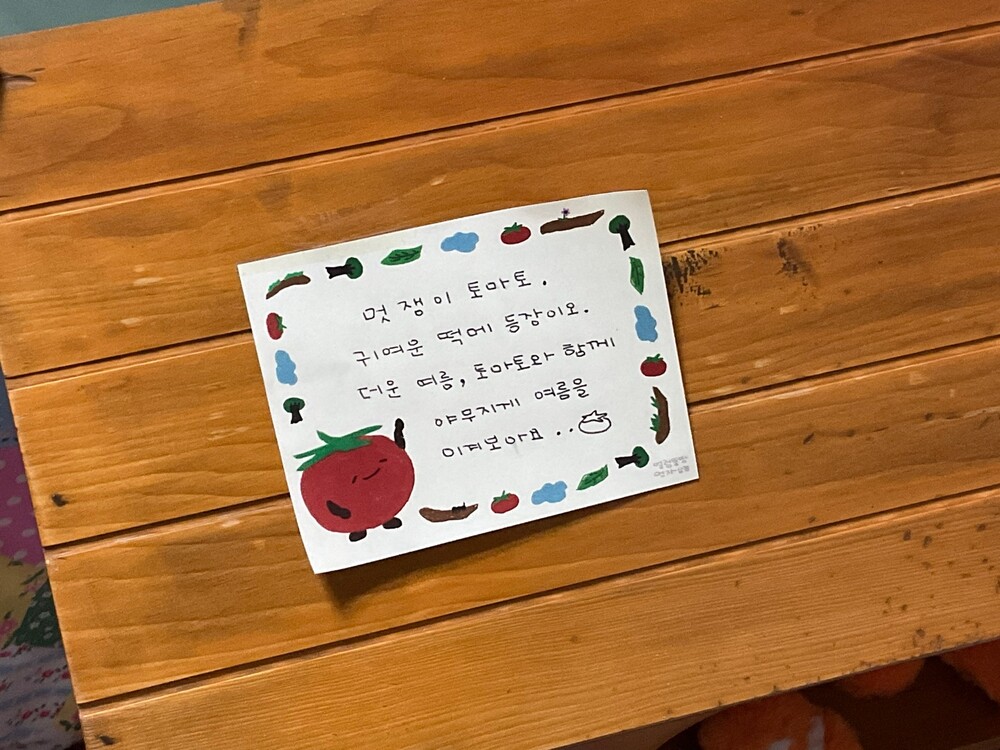 멋쟁이 토마토.
귀여운 떡에 등감이오.
더운 여름, 토마토와 함께
야무지게 여름을
이겨보아요..